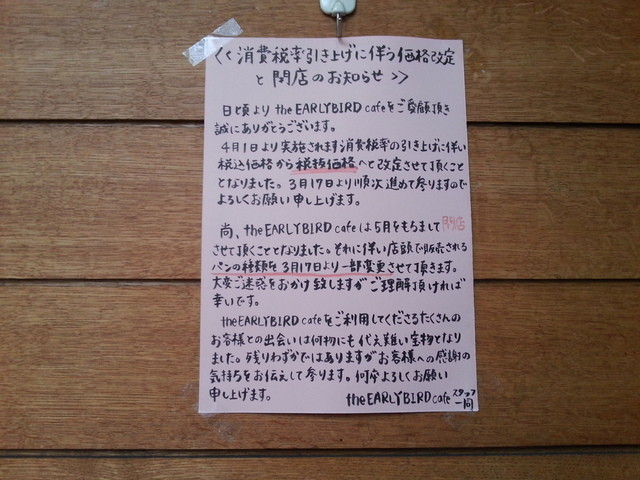 <<消費税率引き上げに伴う価格改定
と閉店のお知らせ>>
日頃より the EARLYBIRD cafeをご愛顧頂き
誠にありがとうございます。
4月1日より実施されます消費税率の引き上げに伴い
税込価格から税抜価格へと改定させて頂くこと
となりました。3月17日より順次進めて参りますので
よろしくお願い申し上げます。
尚、the EARLYBIRD cafeは5月をもちまして閉店
させて頂くこととなりました。それに伴い店頭で販売される
パンの種類を3月17日より一部変更させて頂きます。
大変ご迷惑をおかけ致しますがご理解頂ければ
幸いです。
the EARLYBIRD cafeをご利用してくださるたくさんの
お客様との出会いは何物にも代え難い宝物となり
ました。残りわずかではありますがお客様への感謝の
気持ちをお伝えして参ります。何卒よろしくお願い
申し上げます。
the EARLYBIRD cafe スタッフ一同